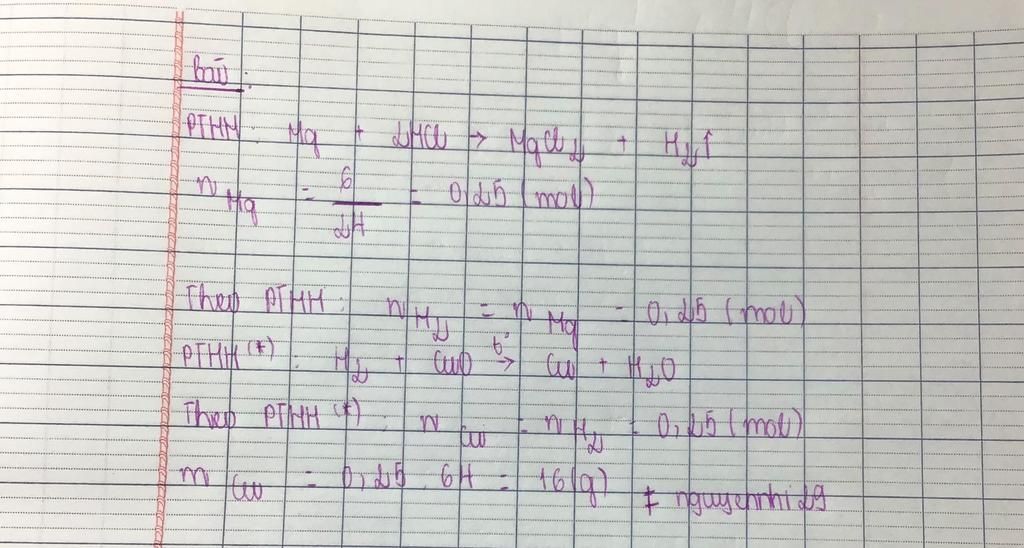 Bài:
PTHH: Mg + 2HCl → MgCl₂ + H₂↑
n Mg = 6/24 = 0,25 (mol)
Theo PTHH: n H₂ = n Mg = 0,25 (mol)
PTHH (*): H₂ + CuO t°→ Cu + H₂O
Theo PTHH (*): n Cu = n H₂ = 0,25 (mol)
m Cu = 0,25 . 64 = 16 (g)
# nguyennhi29